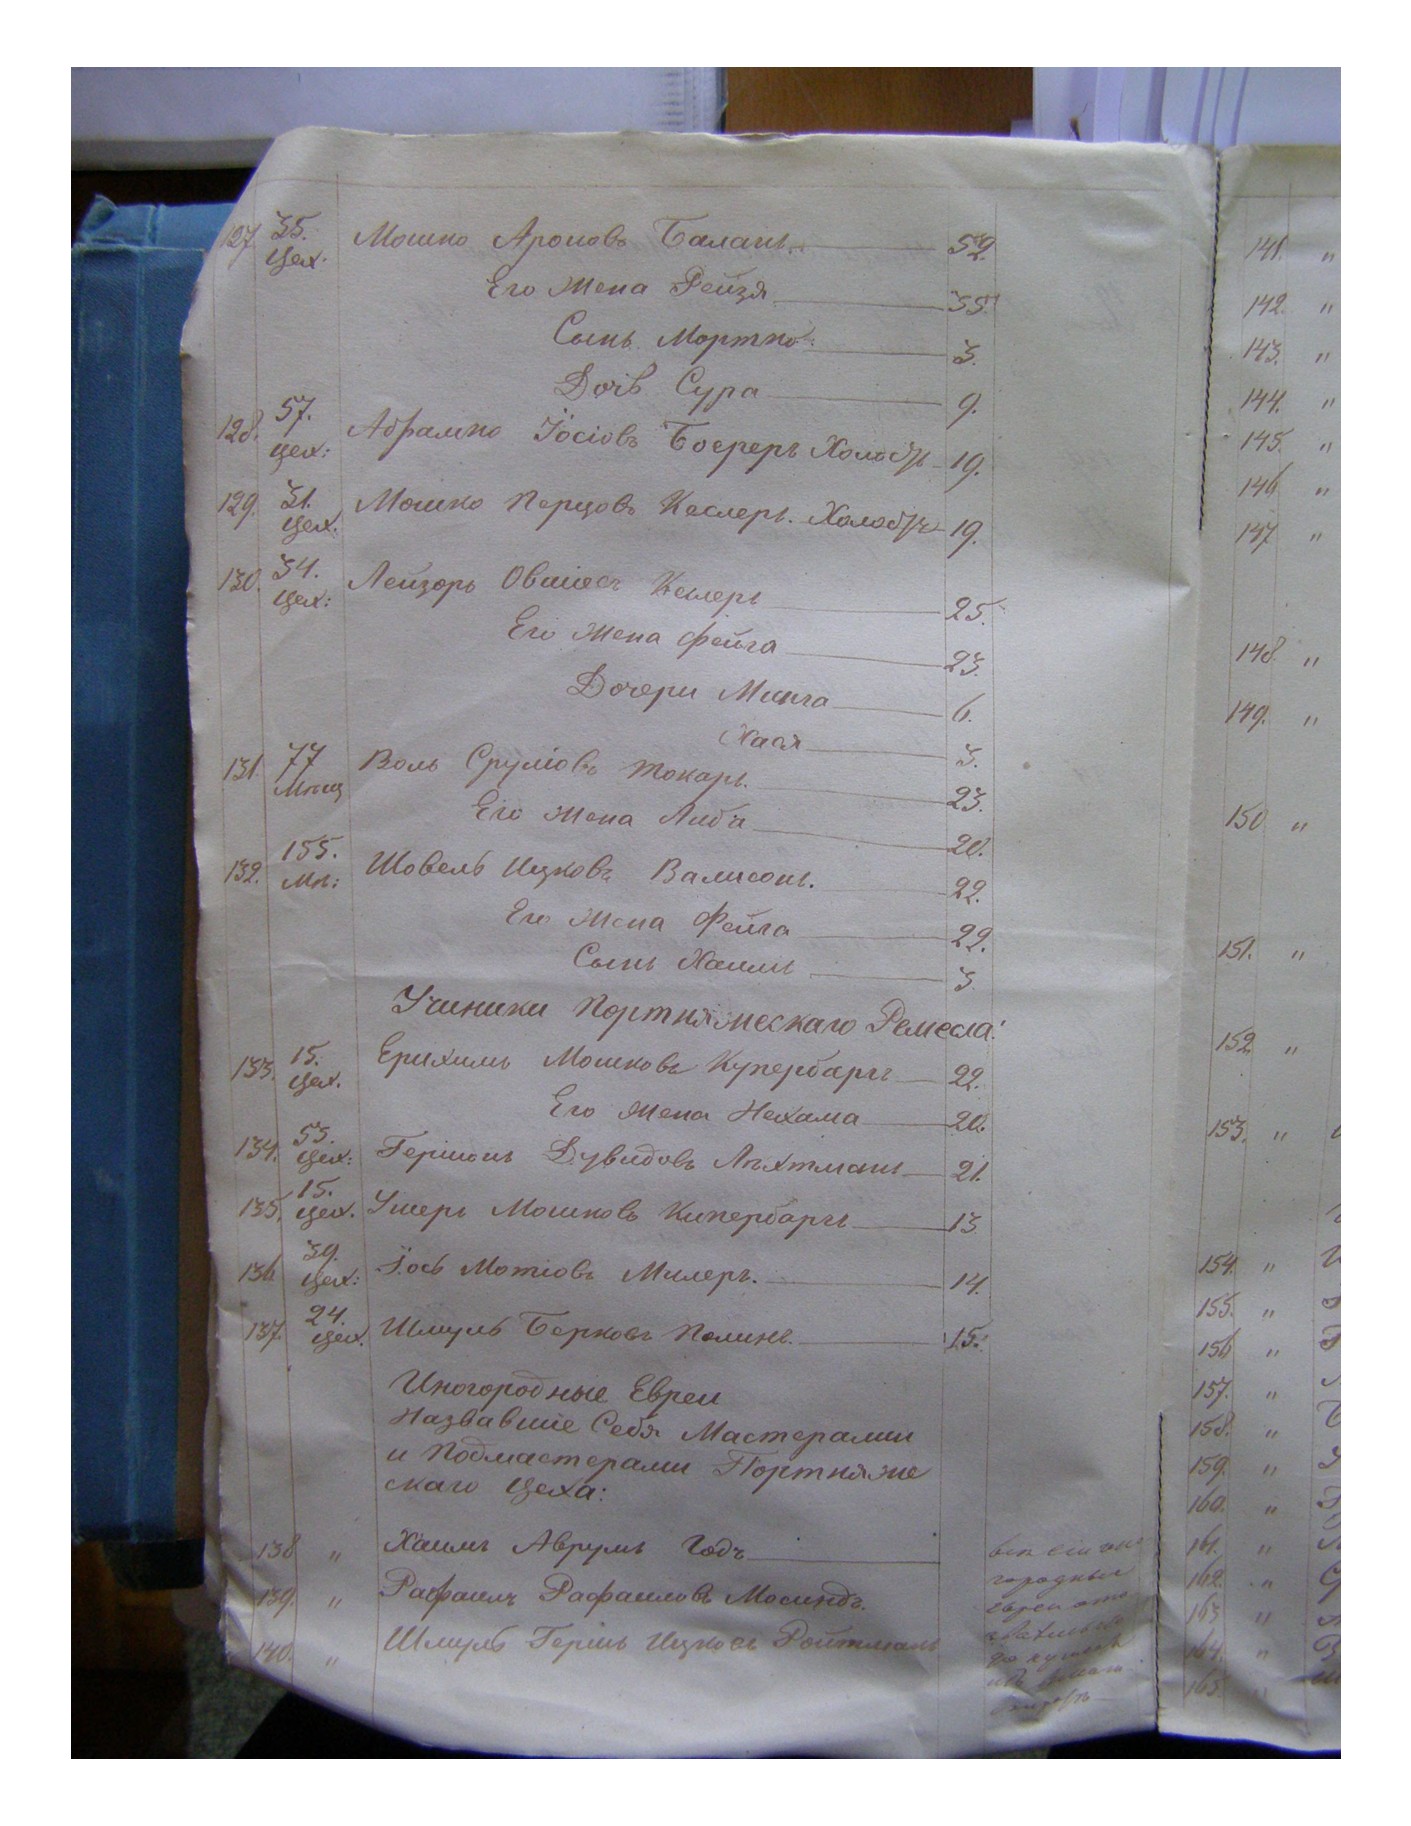 127. 35. цех. Мошко Ароновъ Баланъ 52.
Его жена Рейзя 35.
Сынъ Мортко 3.
Дочь Сура 9.
128. 57. цех: Абрамко Іосіовъ Холостъ 19.
129. 31. цех. Мошко Перцовъ Кеслеръ. Холостъ 19.
130. 34. цех: Лейзоръ Овшіевъ Кеслеръ 25.
Его жена Фейга 23.
Дочери Минга 6.
Хася 3.
131. 77 Мѣщ Воль Сруліовъ Токарь. 23.
Его жена Либа 20.
132. 155. Мѣ: Шовель Ицковъ Валисонъ. 22.
Его жена Фейга 22.
Сынъ Хаимъ 3
Ученики Портняжескаго Ремесла:
133. 15. цех. Ерихимъ Мошковъ Купербаргъ 22.
Его жена Нехама 20.
134. 53. цех: Гершонъ Дувидовъ Лихтманъ 21.
135. 15. цех. Ушеръ Мошковъ Кипербаргъ 13
136 39. цех: Іось Мотіовъ Милеръ. 14.
137. 24. цех. Шмуль Берковъ Полинъ. 15.
Иногородные Евреи
Назвавшіе Себя Мастерами
и Подмастерами Портняже
скаго Цеха:
138 " Хаимъ Аврумъ Годъ
139. " Рафаилъ Рафаиловъ Мосиндъ.
140. " Шмуль Гершъ Ицковъ Ройтманъ
городные
евреи
141. "
142. "
143. "
144. "
145. "
146 "
147 "
148. "
149. "
150 "
151. "
152 "
153. "
154. "
155. "
156 "
157. "
158. "
159. "
160. "
161. "
162. "
163 "
164. "
165. "